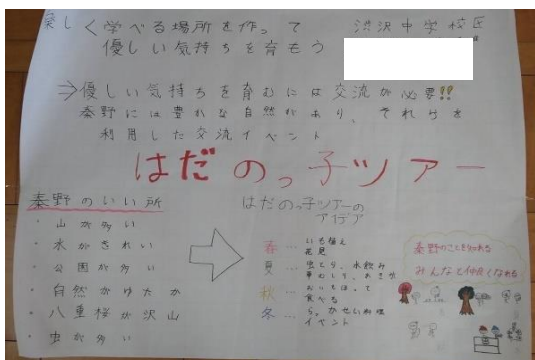 楽しく学べる場所を作って
優しい気持ちを育もう
渋沢中学校区
⇒優しい気持ちを育むには交流が必要!!
秦野には豊かな自然があり、それらを
利用した交流イベント
はだのっ子ツアー
秦野のいい所
・山が多い
・水がきれい
・公園が多い
・自然がゆたか
・八重桜が沢山
・虫が多い
はだのっ子ツアーの
アイデア
春…いも植え
花見
夏…虫とり、水飲み
秋…おちば
食べる
冬…らっかせい料理
イベント
秦野のことを知れる
みんなと仲良くなれる